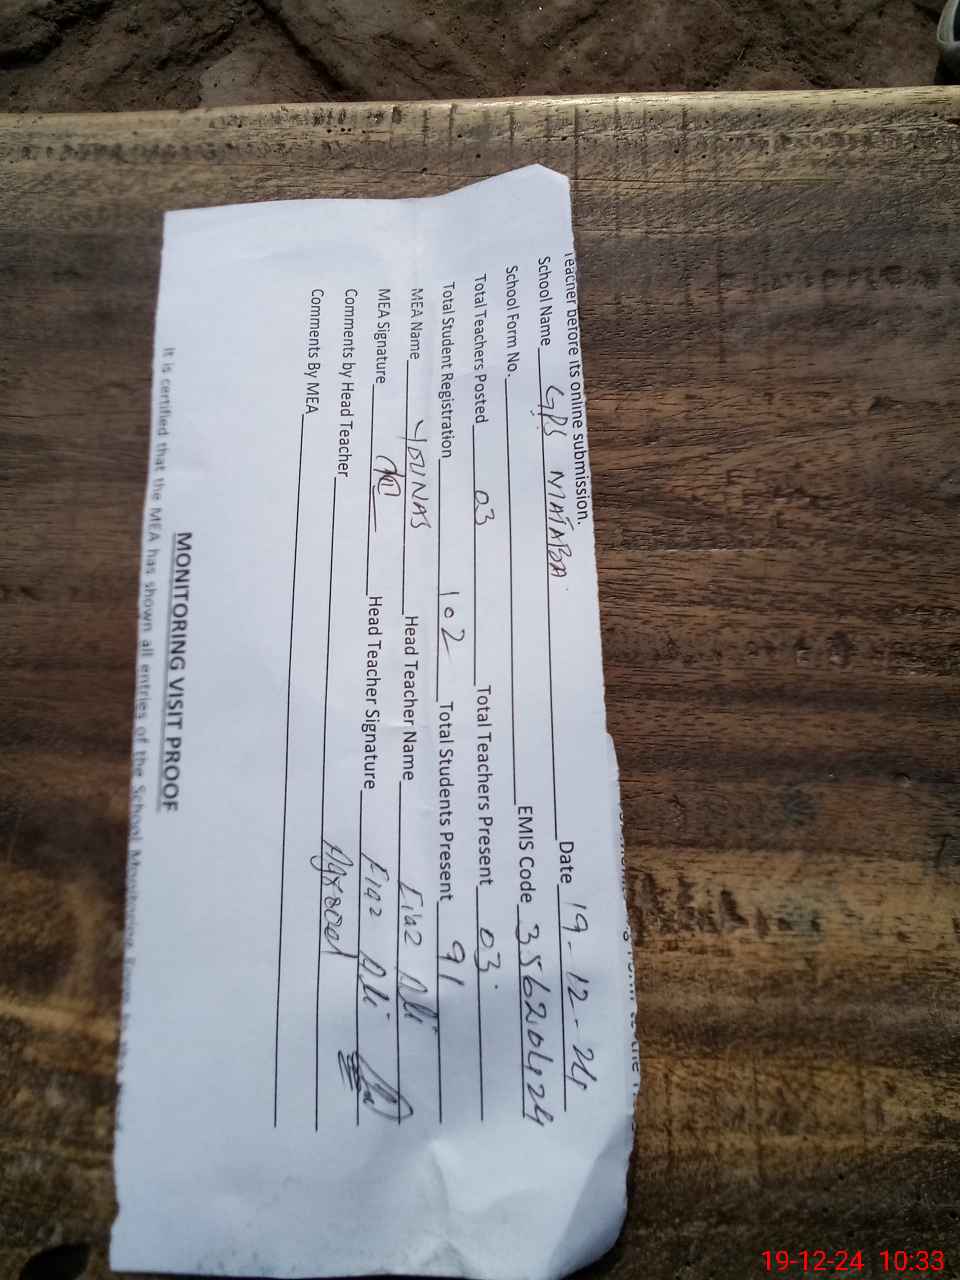 Teacher before its online submission.
School Name GPS MATABA Date 19-12-24
School Form No. EMIS Code 35620424
Total Teachers Posted 03 Total Teachers Present 03
Total Student Registration 102 Total Students Present 91
MEA Name YOUNAS Head Teacher Name Fiaz Ali
MEA Signature Head Teacher Signature Fiaz Ali
Comments by Head Teacher Agreed
Comments By MEA
MONITORING VISIT PROOF
It is certified that the MEA has shown all entries of the School Monitoring
19-12-24 10:33